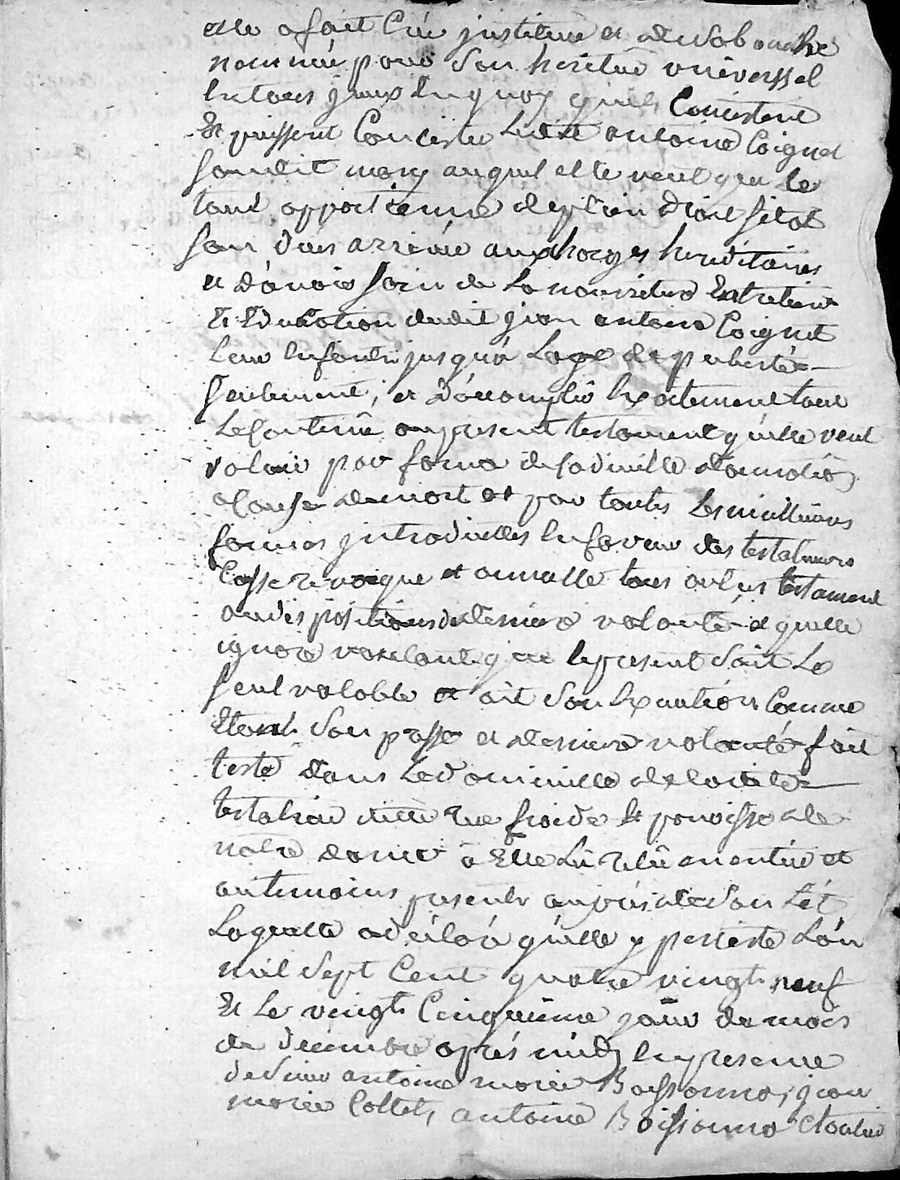 elle a fait crée institué et de sa bouche
nommé pour son heritier universsel
en tous ceux en quoy qu'ils consistent
Et puissent Concister ledit antoine Coignet
sondit mary auquel elle veut que le
tout appartienne de plein droit sitot
son deces arrivé aux charges hereditaires
et d'avoir soin de la nourriture Entretien
Et Education dudit jean antoine Coignet
Leur enfant jusqu'à Lage de puberté
seulement, et d'accomplir Exactement tout
Le contenu au present testament qu'elle veut
valoir par forme de codicille donnation
a cause de mort et par toutes les meilleures
formes introduittes en faveur des testateurs
Casse revoque et annulle tous autres testament
ou dispositions de derniere volonté et qu'elle
ignore voulant que le present soit Le
seul valable et ait son Execution Comme
Etant son et derniere volonté fait
testé dans Le domicille de laditte
testatrice ditte rue froide St paroisse de
notre dame à Elle Lu relu en entier et
aux temoins presents auprès de son Lit
Laquelle a déclaré qu'elle y persiste L'an
mil sept Cent quatre vingt neuf
Et Le vingt Cinquieme jour du mois
de décembre après midy En presence
de Sieur antoine marie Boissonna, jean
marie Collet, antoine Boissonna